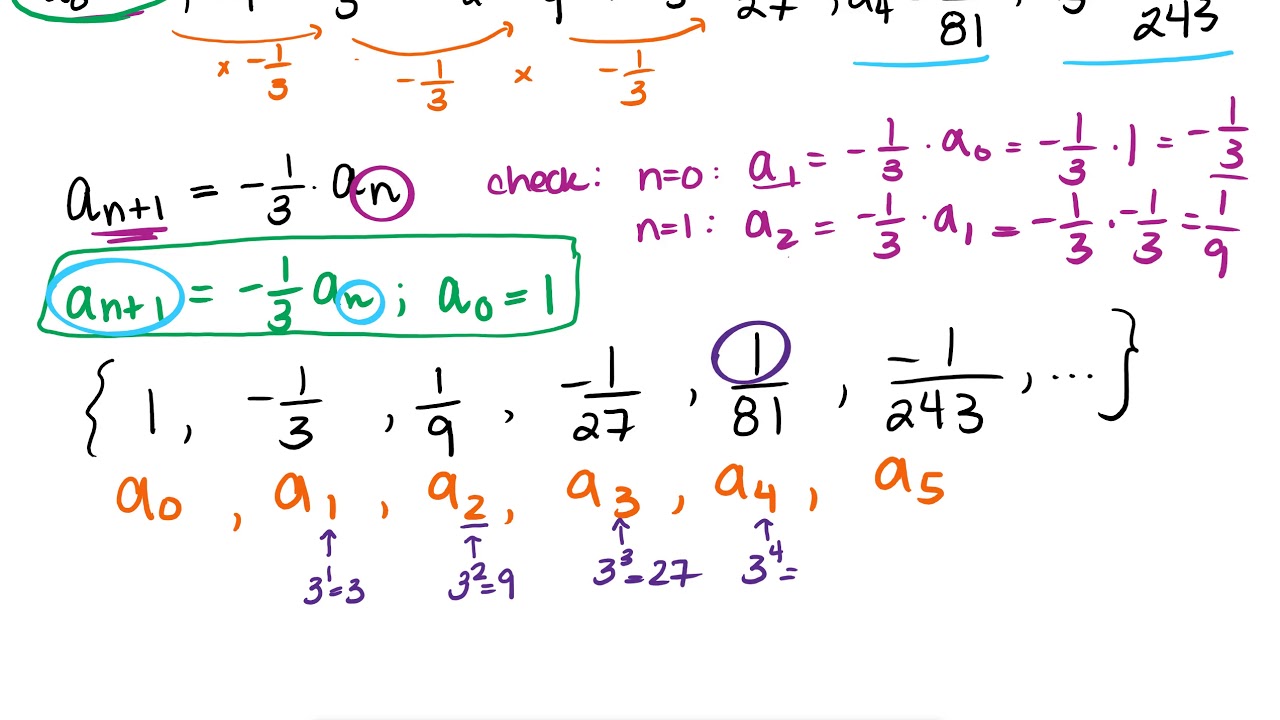 27 , a4 81 , 243
x -1/3 -1/3 x -1/3
an+1 = -1/3 · an
check: n=0: a1 = -1/3 · a0 = -1/3 · 1 = -1/3
n=1: a2 = -1/3 · a1 = -1/3 · -1/3 = 1/9
an+1 = -1/3 an ; a0 = 1
{ 1, -1/3 , 1/9 , -1/27 , 1/81 , -1/243 , ... }
a0 , a1 , a2 , a3 , a4 , a5
3^1=3 3^2=9 3^3=27 3^4=